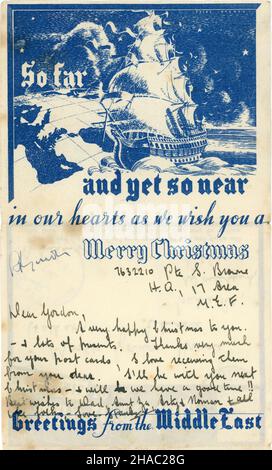 So far
and yet so near
in our hearts as we wish you a
Merry Christmas
7632210 Pte S. Browne
H.Q., 17 Area
M.E.F.
Dear Gordon,
A very happy Christmas to you
- & lots of presents. Thanks very much
for your post cards, I love receiving them
from you dear. I'll be with you next
Christmas - & will we have a good time!!
Best wishes to Dad, Aunt
folks. Love
Greetings from the Middle East
alamy
Image ID: 2HAC28G
www.alamy.com